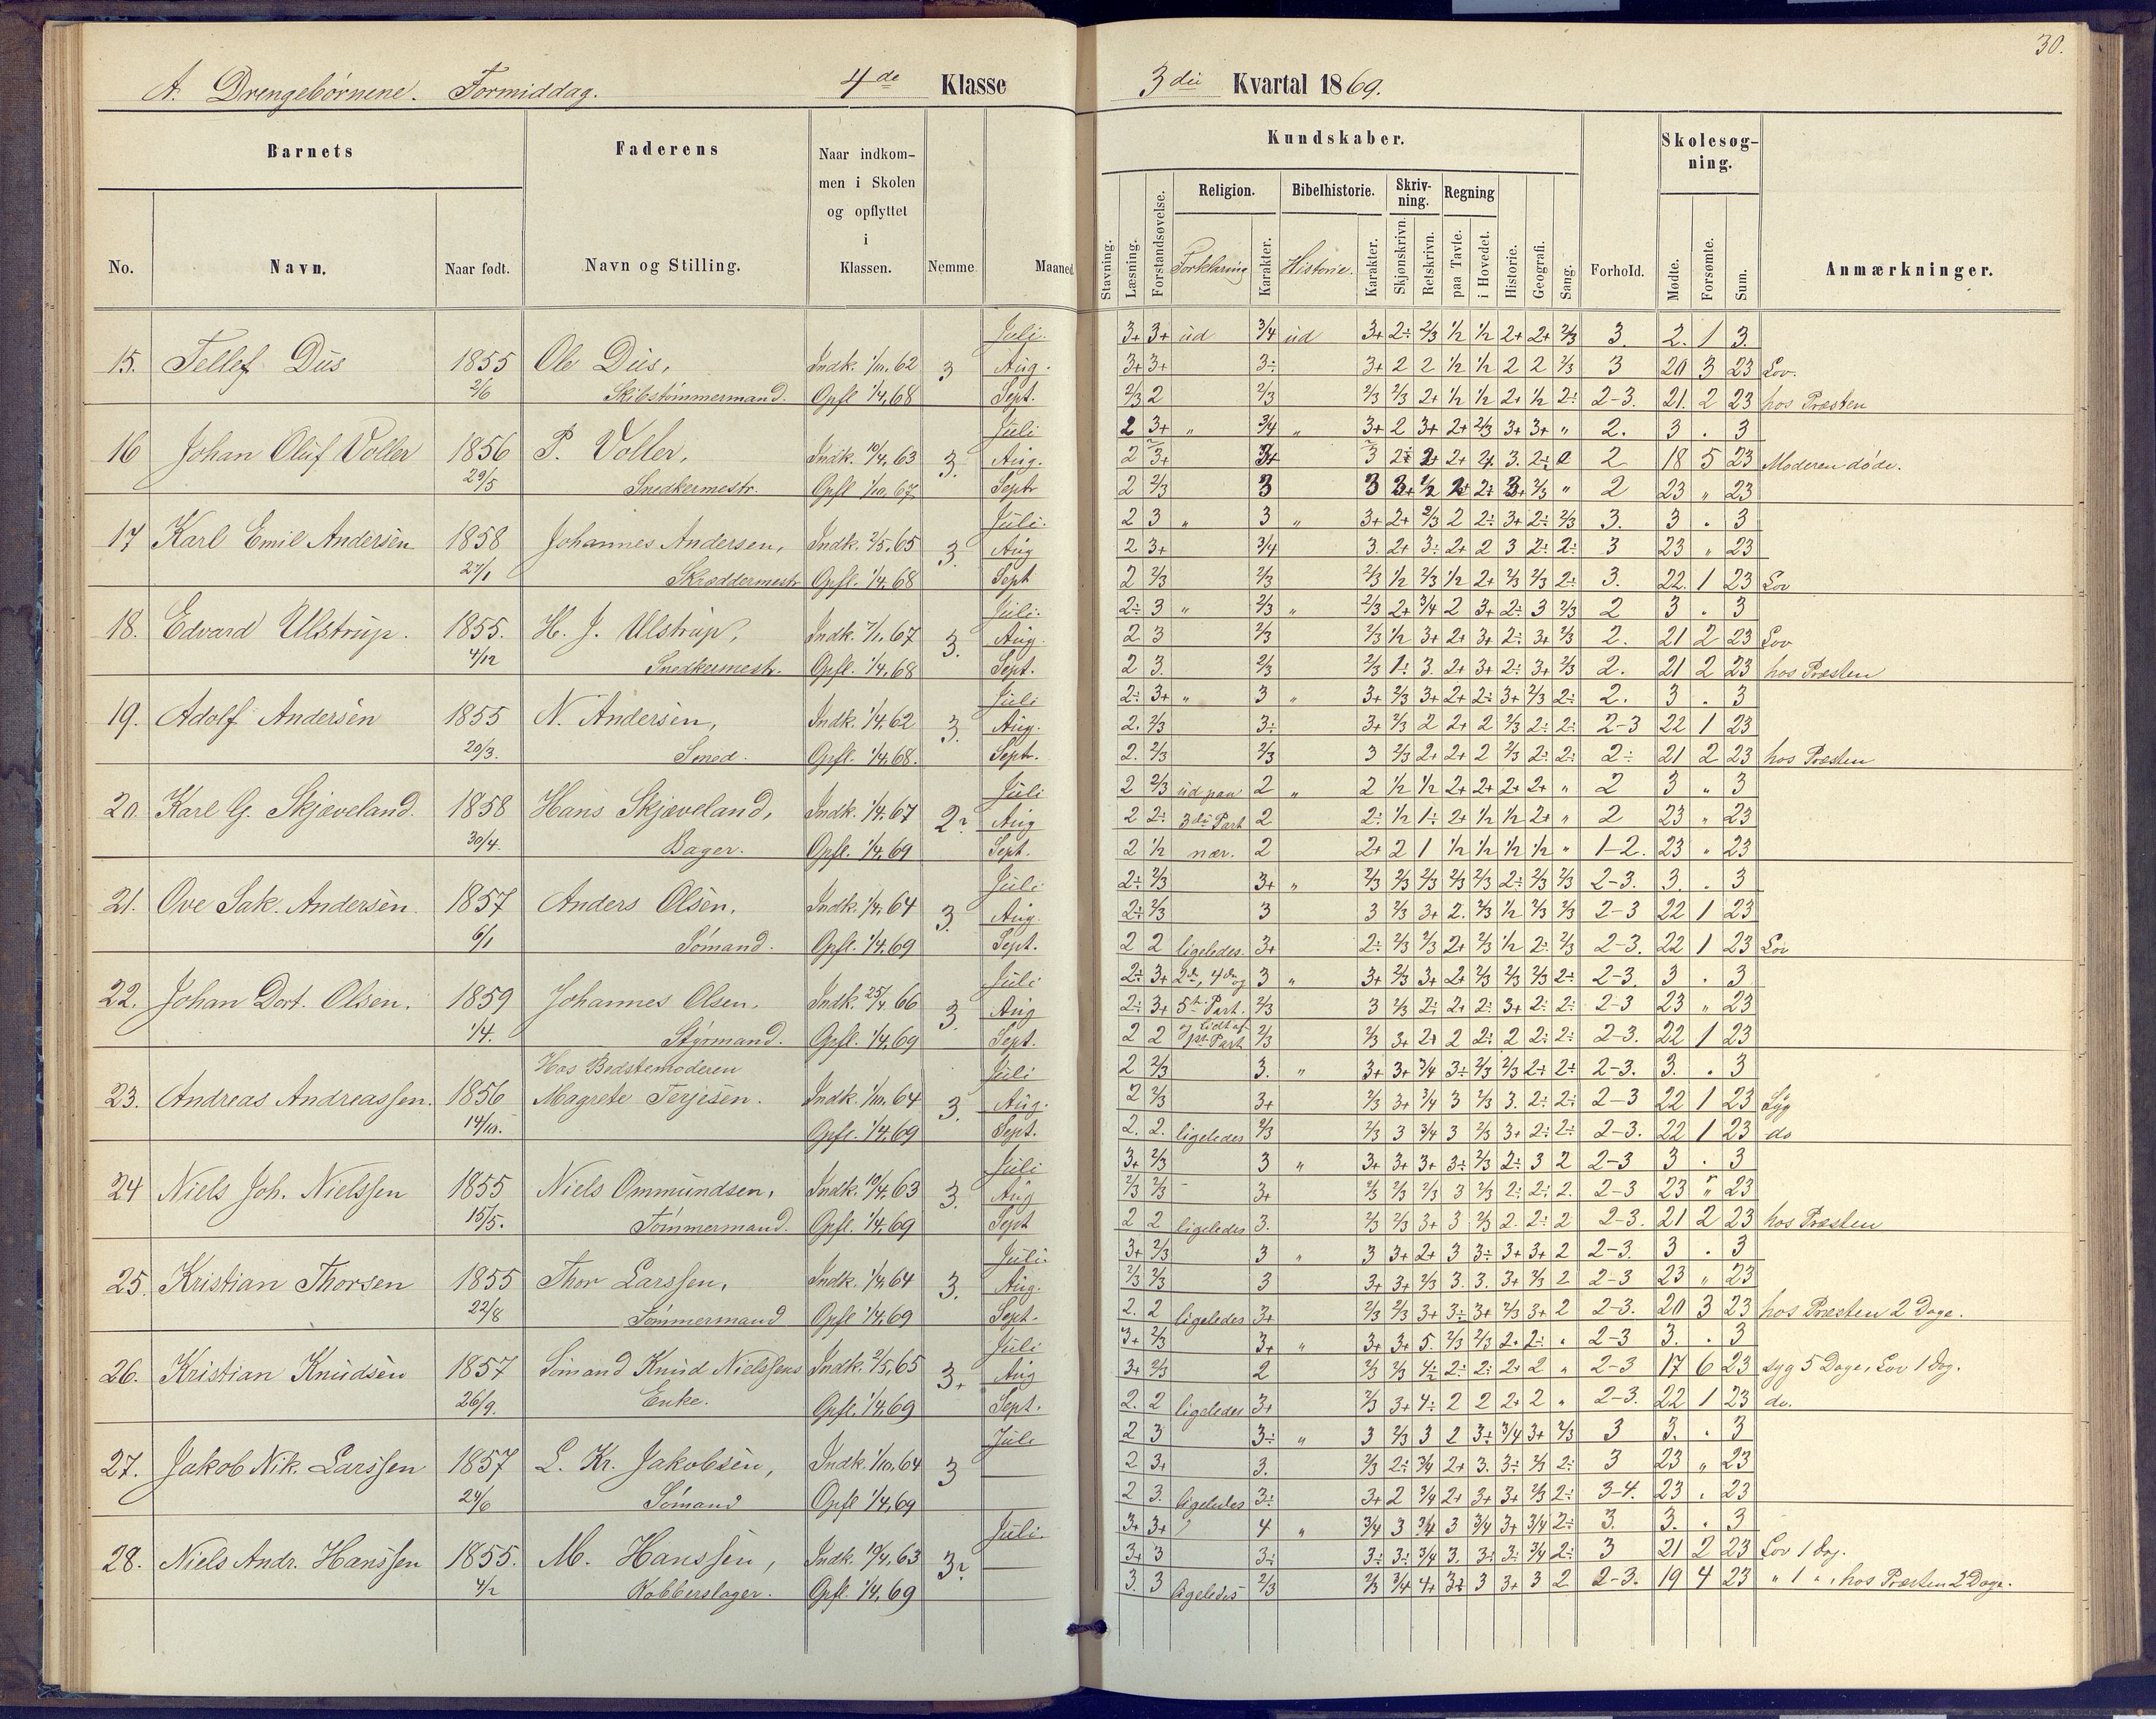 30.
A. Drengebørnene. Formiddag. 4de Klasse 3die Kvartal 1869.
Barnets Faderens Naar indkommen i Skolen og opflyttet i Klassen. Nemme Maaned
No. Navn. Naar født. Navn og Stilling.
Kundskaber. Forhold. Skolesøgning. Anmærkninger.
Stavning. Læsning. Forstandsøvelse. Religion. Forklaring Karakter. Bibelhistorie. Historie. Karakter. Skrivning. Skjønskrivn. Retskrivn. Regning paa Tavle. i Hovedet. Historie. Geografi. Sang. Mødte. Forsømte. Sum.
Juli. 3+ 3+ ud 3/4 ud 3+ 2÷ 2/3 1/2 1/2 2+ 2+ 2/3 3. 2. 1 3.
15. Tellef Dus 1855 Ole Dus, Indk. 1/10, 62 3 Aug. 3+ 3+ 3÷ 3+ 2 2 1/2 1/2 2 2 2/3 3 20 3 23 Lov.
2/6 Skibstømmermand. Opfl 1/4, 68 Sept. 2/3 2 2/3 2/3 2/3 2+ 1/2 1/2 2+ 1/2 2÷ 2-3. 21. 2 23 hos Præsten
Juli 2 3+ " 3/4 " 3+ 2 3+ 2+ 2/3 3+ 3+ " 2. 3 . 3
16 Johan Oluf Voller 1856 P. Voller, Indk. 10/4, 63 3. Aug. 2 3+ 3+ 3 2÷ 2+ 2+ 2+ 3. 2÷ 2 18 5 23 Moderen døde.
29/5 Snedkermestr. Opfl 1/10, 67 Septr 2 2/3 3 3 3+ 1/2 2+ 2÷ 3+ 2/3 " 2 23 " 23
Juli. 2 3 " 3 " 3+ 2+ 2/3 2 2÷ 3+ 2÷ 2/3 3. 3 . 3
17 Karl Emil Andersen 1858 Johannes Andersen, Indk. 2/5, 65 3. Aug 2 3+ 3/4 3. 2+ 3÷ 2+ 2 3 2÷ 2÷ 3 23 " 23
27/1 Skræddermestr Opfl. 1/4, 68 Sept 2 2/3 2/3 2/3 1/2 2/3 1/2 2+ 2/3 2/3 2÷ 3. 22. 1 23 Lov
Juli. 2÷ 3 " 2/3 " 2/3 2+ 3/4 2 3+ 2÷ 3 2/3 2 3 . 3
18. Edvard Ulstrup. 1855. H. J. Ulstrup, Indk. 7/10, 67 3. Aug. 2 3 2/3 2/3 1/2 3+ 2+ 3+ 2÷ 3+ 2/3 2. 21 2 23 Lov
4/12 Snedkermestr. Opfl. 1/4, 68 Sept. 2 3. 2/3 2/3 1÷ 3. 2+ 3+ 2÷ 3+ 2/3 2. 21 2 23 hos Præsten
Juli 2÷ 3+ " 3 " 3+ 2/3 3+ 2+ 2÷ 3+ 2/3 2÷ 2. 3 . 3
19. Adolf Andersen 1855 N. Andersen, Indk. 1/4, 62 3. Aug. 2. 2/3 3÷ 3+ 2/3 2 2+ 2 2/3 2÷ 2÷ 2-3 22 1 23
20/3. Smed. Opfl. 1/4, 68. Septr. 2. 2/3 2/3 3 2/3 2+ 2+ 2 2/3 2÷ 2÷ 2÷ 21 2 23 hos Præsten
Juli 2 2/3 ud paa 2 " 2 1/2 1/2 2+ 2+ 2+ 2+ " 2 3 " 3
20. Karl G. Skjæveland. 1858 Hans Skjæveland, Indk. 1/4, 67 2÷ Aug 2 2÷ 3die Part 2 2÷ 1/2 1÷ 2+ 1/2 1/2 2+ " 2 23 " 23
30/4. Bager. Opfl. 1/4, 69 Sept. 2 1/2 nær. 2 2+ 2 1 1/2 1/2 1/2 1/2 " 1-2. 23 " 23
Juli 2÷ 2/3 3+ " 2/3 2/3 2/3 2/3 2/3 2÷ 2/3 2/3 2-3. 3. . 3
21. Ove Sak. Andersen. 1857 Anders Olsen, Indk. 1/4, 64 3. Aug. 2÷ 2/3 3 3 2/3 3+ 2. 2/3 1/2 2/3 2/3 2-3 22 1 23
6/1 Sømand. Opfl. 1/4, 69 Sept. 2 2 ligeledes 3+ 2÷ 2/3 2/3 2+ 2/3 1/2 2÷ 2/3 2-3. 22 1 23 Lov
Juli 2÷ 3+ 2den, 4de og 3 " 3+ 2/3 3+ 2+ 2/3 2/3 2/3 2÷ 2-3. 3 . 3
22. Johan Dort. Olsen. 1859 Johannes Olsen, Indk. 25/4 66 3. Aug 2÷ 3+ 5te Part. 2/3 3 2/3 2÷ 2+ 2÷ 3+ 2÷ 2÷ 2-3 23 " 23
1/4. Styrmand. Opfl. 1/4, 69 Sept. 2 2 og lidt af 1ste Part 2/3 2/3 3+ 2+ 2 2÷ 2 2÷ 2÷ 2-3. 22 1 23
Hos Bedstemoderen Juli 2 2/3 3. " 3+ 3+ 3/4 3÷ 2/3 2/3 2÷ 2÷ 2-3. 3. . 3
23. Andreas Andreassen. 1856 Magrete Terjesen. Indk. 1/10, 64 3. Aug. 2 2/3 3+ 2/3 3+ 3/4 3 2/3 3. 2÷ 2÷ 2-3 22 1 23 Syg
14/10. Opfl. 1/4, 69 Sept. 2. 2. ligeledes 2/3 2/3 3 3/4 3 2/3 3+ 2÷ 2÷ 2-3. 22 1 23 do
Juli 3+ 2/3 3 " 3+ 3+ 3+ 3÷ 2/3 2÷ 3 2 2-3 3 . 3
24 Niels Joh. Nielssen 1855 Niels Ommundsen, Indk. 10/4, 63 3. Aug 2/3 2/3 3+ 2/3 2/3 2/3 3 2/3 2÷ 2÷ 2. 2-3 23 " 23
15/5. Tømmermand. Opfl. 1/4, 69 Sept 2 2 ligeledes 3. 2/3 2/3 3+ 3 2/3 2. 2÷ 2 2-3. 21 2 23 hos Præsten
Juli. 3+ 2/3 3 " 3 3+ 2+ 3 3÷ 3+ 3+ 2 2-3. 3 . 3
25. Kristian Thorsen 1855 Thor Larssen, Indk. 1/4, 64 3. Aug. 2/3 2/3 3 3+ 3+ 2/3 3. 3. 3+ 2/3 2 2-3 23 " 23
22/8 Tømmermand Opfl 1/4, 69 Sept. 2. 2 ligeledes 3+ 2/3 2/3 3+ 3÷ 3+ 2/3 3+ 2 2-3. 20 3 23 hos Præsten 2 Dage.
Juli 3+ 2/3 3+ " 3+ 3+ 5. 2/3 2/3 2+ 2÷ " 2-3 3. . 3
26. Kristian Knudsen 1857 Sømand Knud Nielssens Indk. 2/5, 65 3+ Aug 3+ 2/3 2 2/3 2/3 4÷ 2÷ 2÷ 2+ 2 " 2-3 17 6 23 syg 5 Dage, Lov 1 Dag.
26/9. Enke. Opfl. 1/4, 69 Sept. 2. 2 ligeledes 3+ 2/3 3+ 4÷ 2 2 2+ 2 " 2-3. 22 1 23 do.
Juli 2 3 3÷ " 3 2/3 3 2 3÷ 3/4 3+ 2/3 3 3. . 3
27. Jakob Nik. Larssen 1857 L. Kr. Jakobsen, Indk. 1/10, 64 3 2 3+ 3. 2/3 2÷ 3/4 2+ 3. 3÷ 2/3 2÷ 3 23 " 23
24/6 Sømand Opfl 1/4, 69 2 3. ligeledes 3÷ 3+ 2 3/4 2+ 3+ 3+ 2/3 2÷ 3-4. 23 . 23
Juli. 3+ 3+ 4 " 3/4 3 3/4 3 3/4 3+ 3/4 2÷ 3. 3. . 3
28. Niels Andr. Hanssen 1855. M. Hanssen, Indk. 10/4, 63 3÷ 3+ 3 3÷ 3÷ 3÷ 3/4 3. 3÷ 3÷ 3/4 2÷ 3 21 2 23 Lov 1 Dag.
4/2 Kobberslager. Opfl. 1/4, 69 3. 3 ligeledes 2/3 2/3 3/4 4+ 3÷ 3 3+ 3 2 2-3. 19 4 23 " 1 ", hos Præsten 2 Dage.